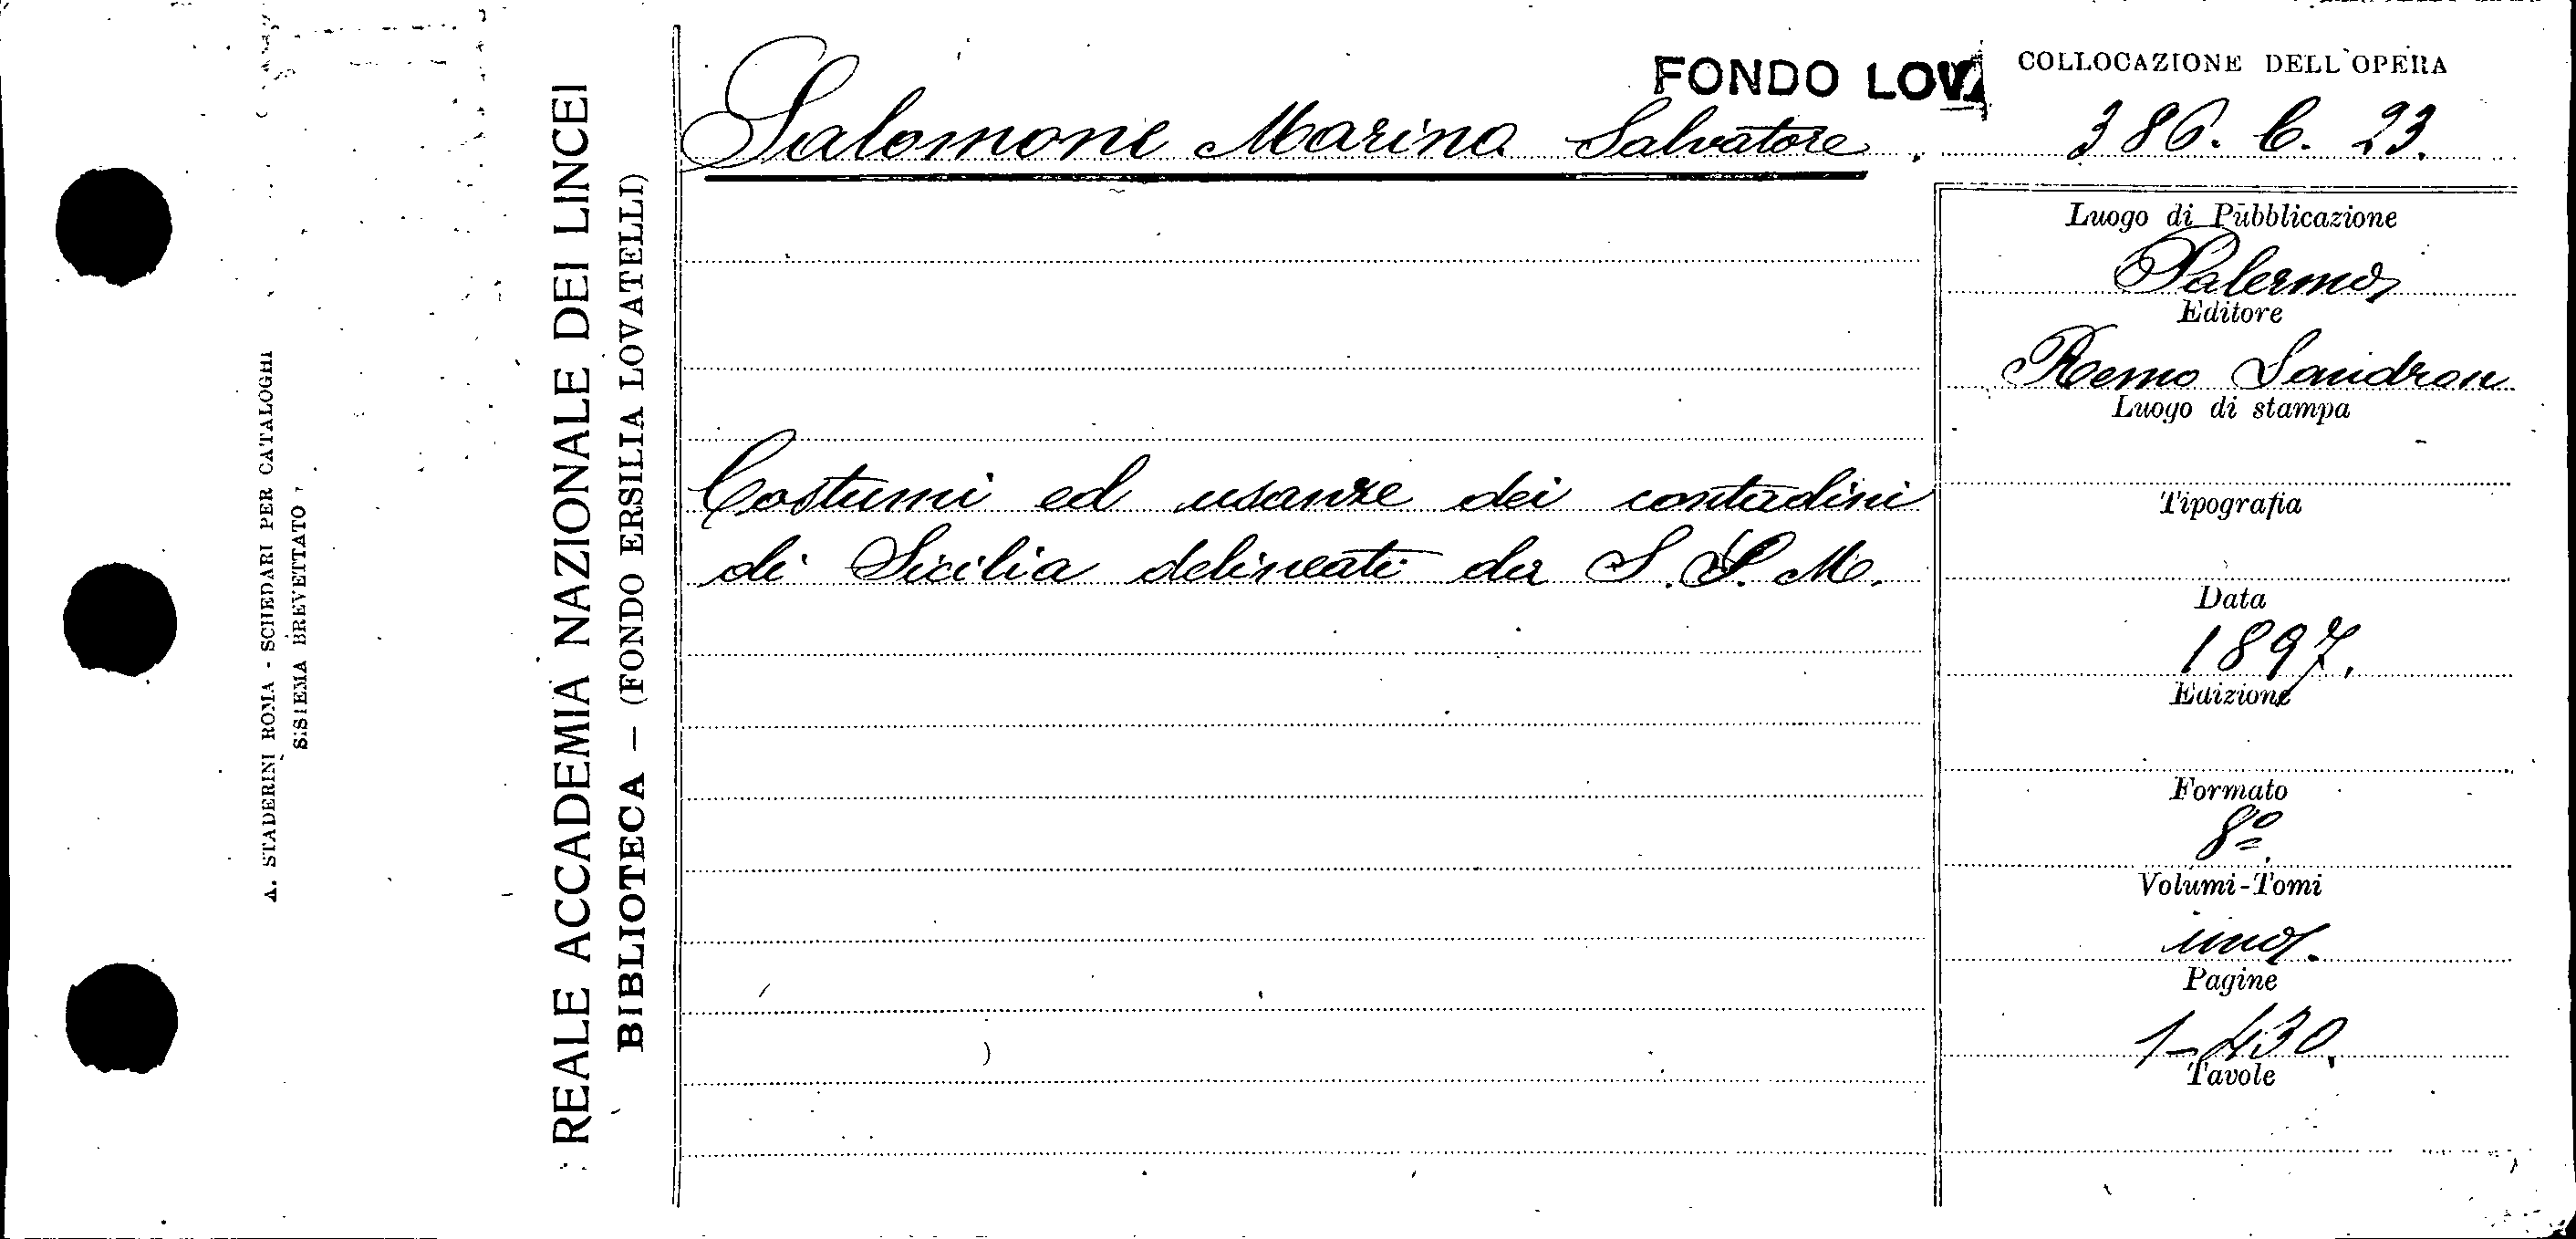 A. STADERINI ROMA - SCHEDARI PER CATALOGHI
SISTEMA BREVETTATO
REALE ACCADEMIA NAZIONALE DEI LINCEI
BIBLIOTECA — (FONDO ERSILIA LOVATELLI)
FONDO LOV.
COLLOCAZIONE DELL'OPERA
Salomone Marino Salvatore.
386. C. 23.
Costumi ed usanze dei contadini
di Sicilia delineati da S. S. M.
Luogo di Pubblicazione
Palermo
Editore
Remo Sandron
Luogo di stampa
Tipografia
Data
1897.
Edizione
Formato
8º.
Volumi-Tomi
uno.
Pagine
1-430.
Tavole